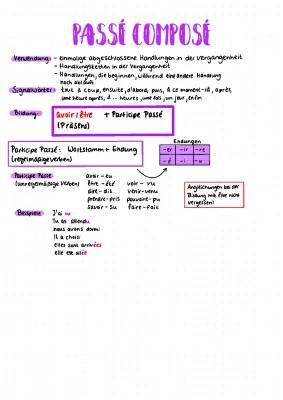 PASSÉ COMPOSÉ
Verwendung: - Einmalige abgeschlossene Handlungen in der Vergangenheit
- Handlungsketten in der Vergangenheit
- Handlungen, die beginnen, während eine andere Handlung
noch abläuft
Signalwörter: tout à coup, ensuite, d'abord, puis, à ce moment-là, après,
une heure après, à ... heures, un jour, enfin
Bildung: avoir / être + Participe Passé
(Präsens)
Endungen
Participe Passé: Wortstamm + Endung
(regelmäßige Verben)
-er -ir -re
-é -i -u
Participe Passé
(unregelmäßige Verben)
avoir - eu
être - été voir - vu
dire - dit venir - venu
prendre - pris pouvoir - pu
savoir - su faire - fait
Angleichungen bei der
Bildung mit être nicht
vergessen!
Beispiele: J'ai eu
Tu as attendu
nous avons dormi
Il a choisi
elles sont arrivées
elle est